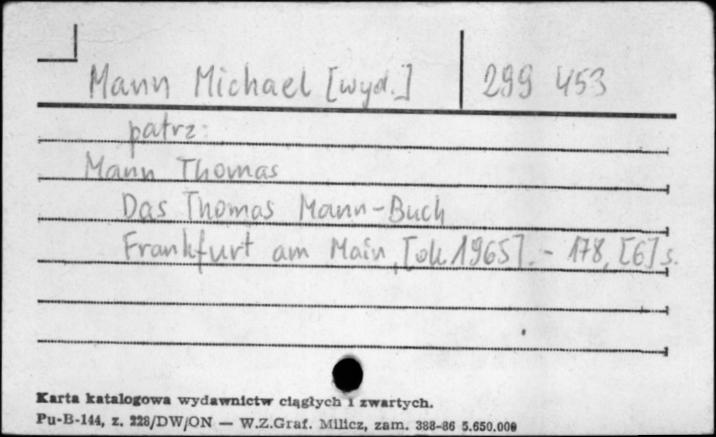 Mann Michael [wyd.] 299 453
patrz:
Mann Thomas
Das Thomas Mann-Buch
Frankfurt am Main, [ok. 1965]. - 178, [6] s.
Karta katalogowa wydawnictw ciągłych i zwartych.
Pu-B-144, z. 228/DW/ON — W.Z.Graf. Milicz, zam. 388-86 5.650.000